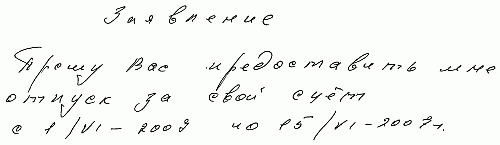 Заявление
Прошу Вас предоставить мне
отпуск за свой счёт
с 1/VI-2007 по 15/VI-2007г.